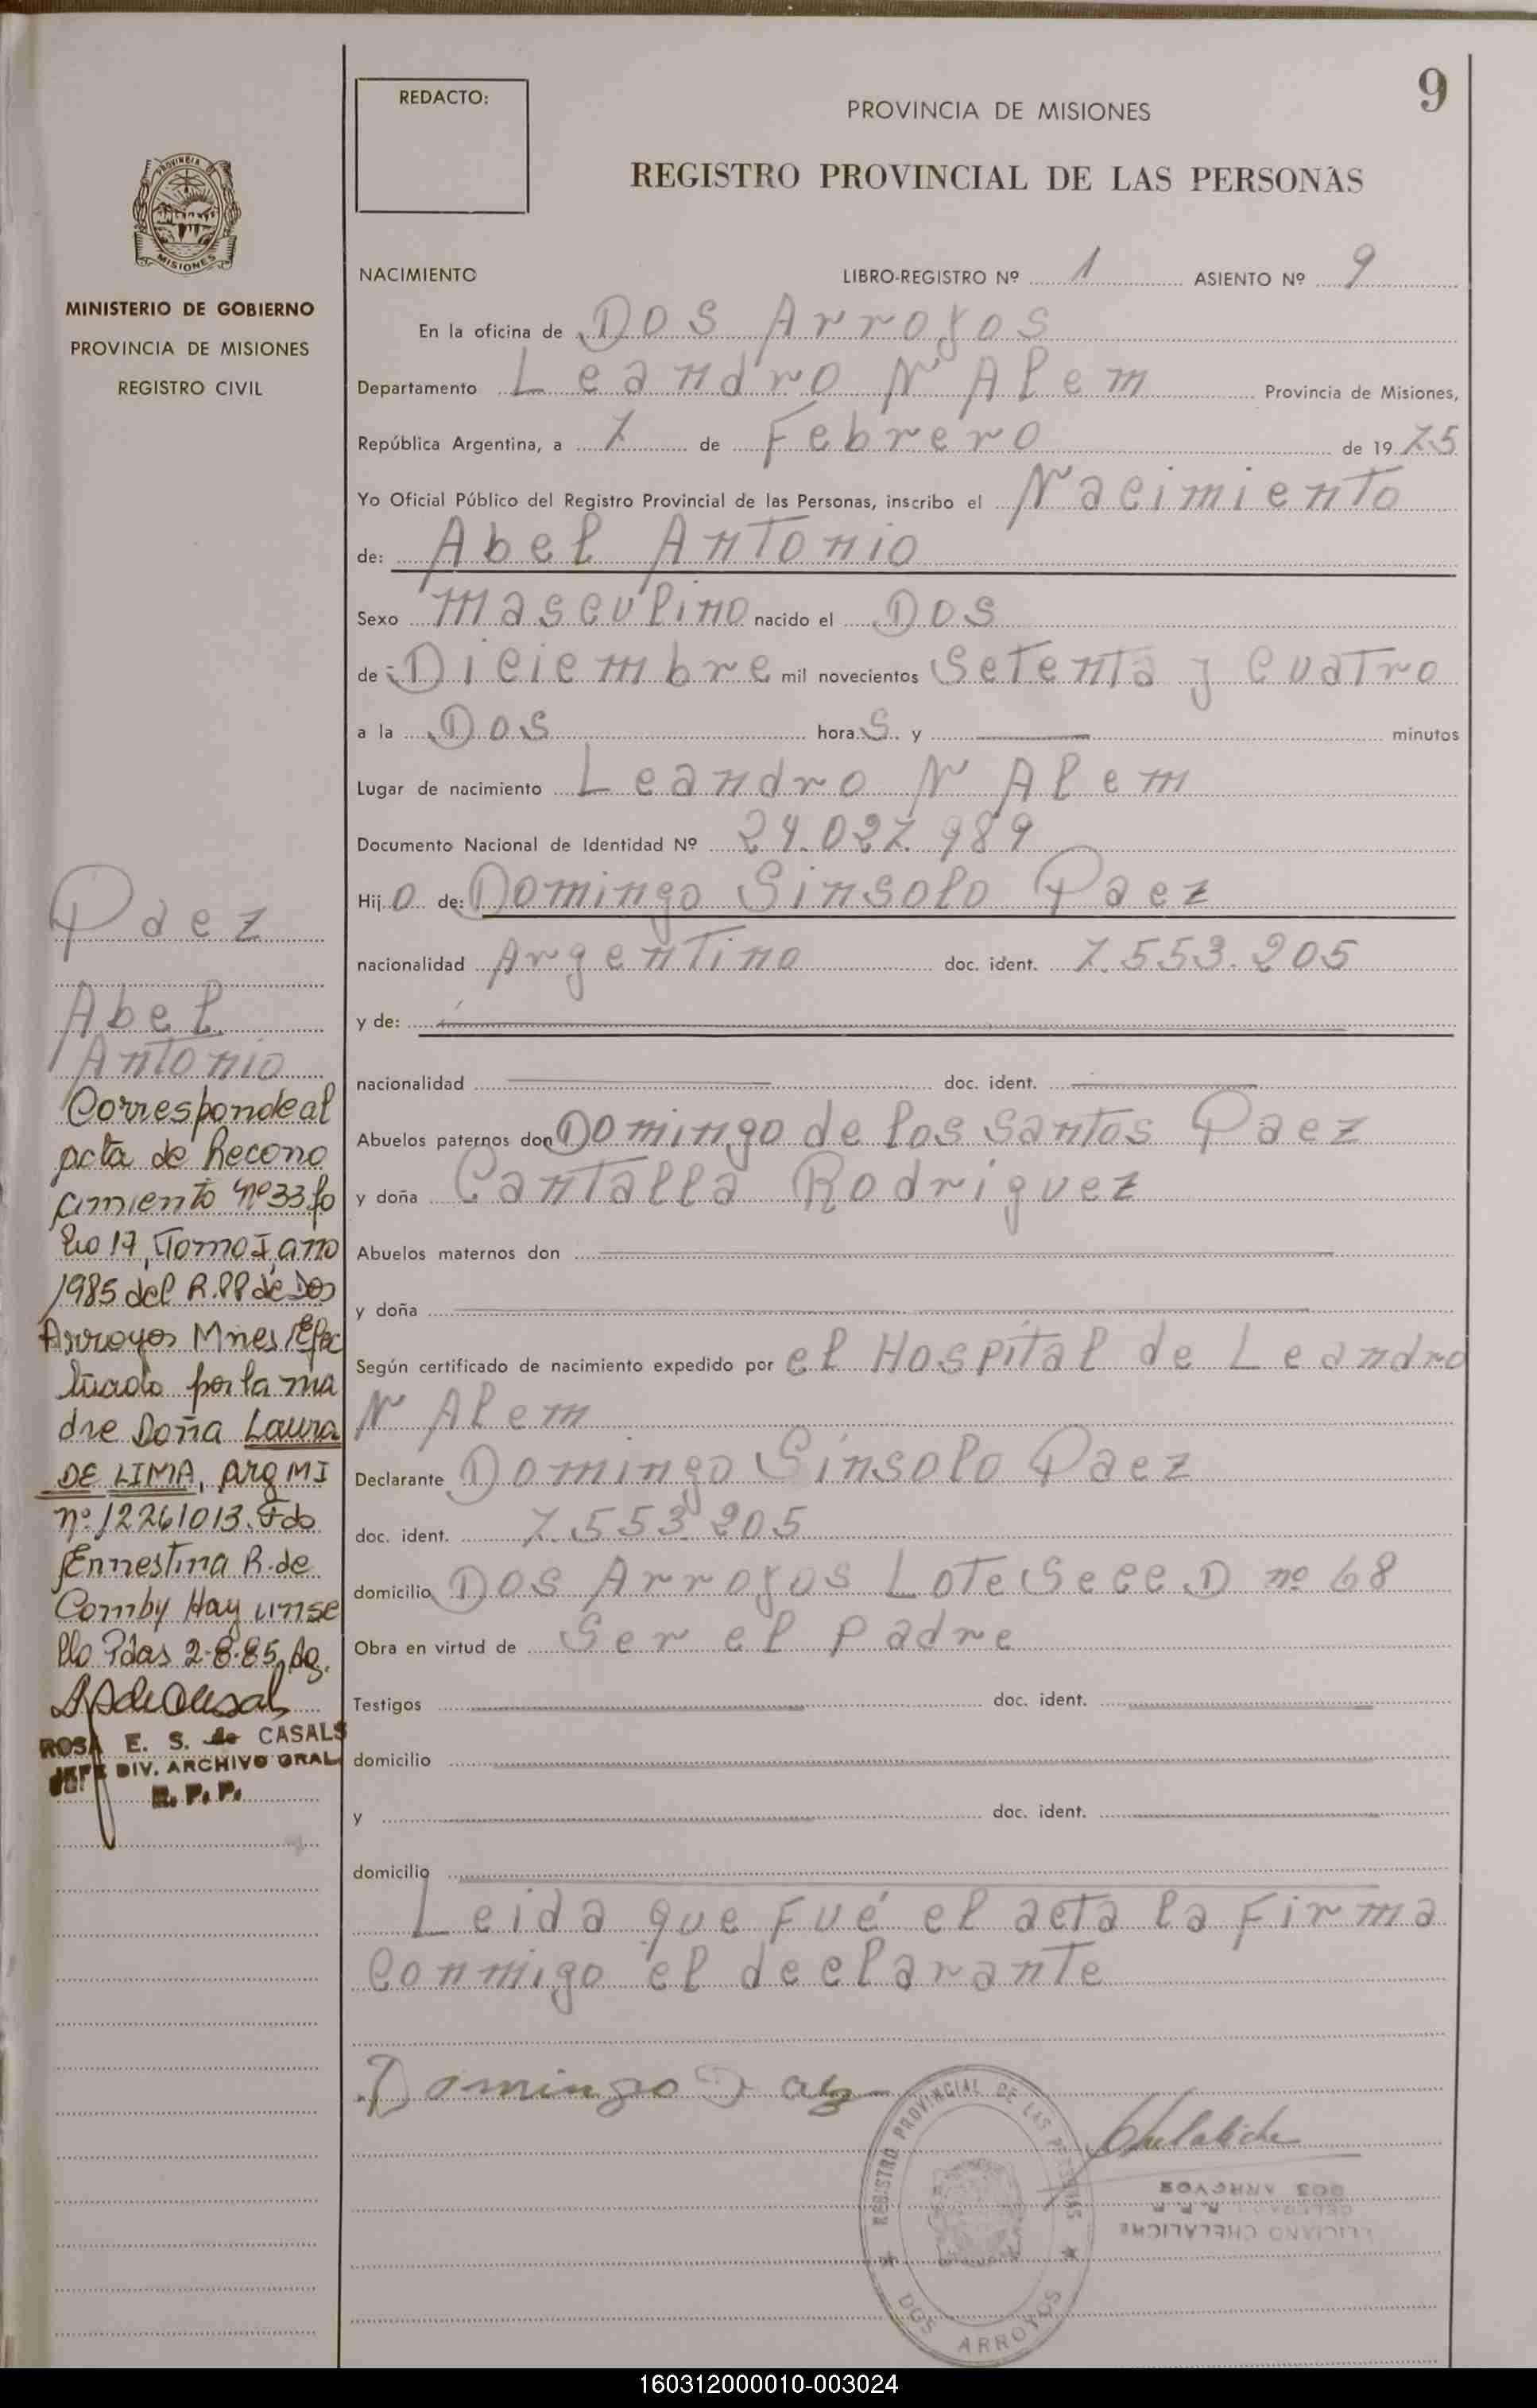 9
REDACTO:
PROVINCIA DE MISIONES
REGISTRO PROVINCIAL DE LAS PERSONAS
PROVINCIA
MISIONES
MINISTERIO DE GOBIERNO
PROVINCIA DE MISIONES
REGISTRO CIVIL
NACIMIENTO LIBRO-REGISTRO Nº 1 ASIENTO Nº 9
En la oficina de Dos Arroyos
Departamento Leandro N Alem Provincia de Misiones,
República Argentina, a 7 de Febrero de 1975
Yo Oficial Público del Registro Provincial de las Personas, inscribo el Nacimiento
de: Abel Antonio
Sexo masculino nacido el Dos
de Diciembre mil novecientos Setenta y cuatro
a la Dos horas y minutos
Lugar de nacimiento Leandro N Alem
Documento Nacional de Identidad Nº 24.027.989
Hijo de: Domingo Sinsolo Paez
nacionalidad Argentino doc. ident. 7.553.205
y de:
nacionalidad doc. ident.
Abuelos paternos don Domingo de los santos Paez
y doña Cantalla Rodriguez
Abuelos maternos don
y doña
Según certificado de nacimiento expedido por el Hospital de Leandro
N Alem
Declarante Domingo Sinsolo Paez
doc. ident. 7.553.205
domicilio Dos Arroyos Lote Secc D nº 68
Obra en virtud de Ser el padre
Testigos doc. ident.
domicilio
y doc. ident.
domicilio
Leida que Fué el acta la Firma
Conmigo el declarante
Paez
Abel
Antonio
Corresponde al
acta de Recono
cimiento nº 33 fo
lio 17, Tomo I, año
1985 del R.PP de Dos
Arroyos Mnes/Efec
tuado por la ma
dre Doña Laura
DE LIMA, Arg MI
nº 12261013. Fdo
Ernestina R. de
Comby Hay un se
llo Pdas 2-8-85
ROSA E. S. de CASALS
JEFE DIV. ARCHIVO GRAL
R. P. P.
REGISTRO PROVINCIAL DE LAS PERSONAS
DOS ARROYOS
LUCIANO CHELALICHE
DOS ARROYOS
160312000010-003024